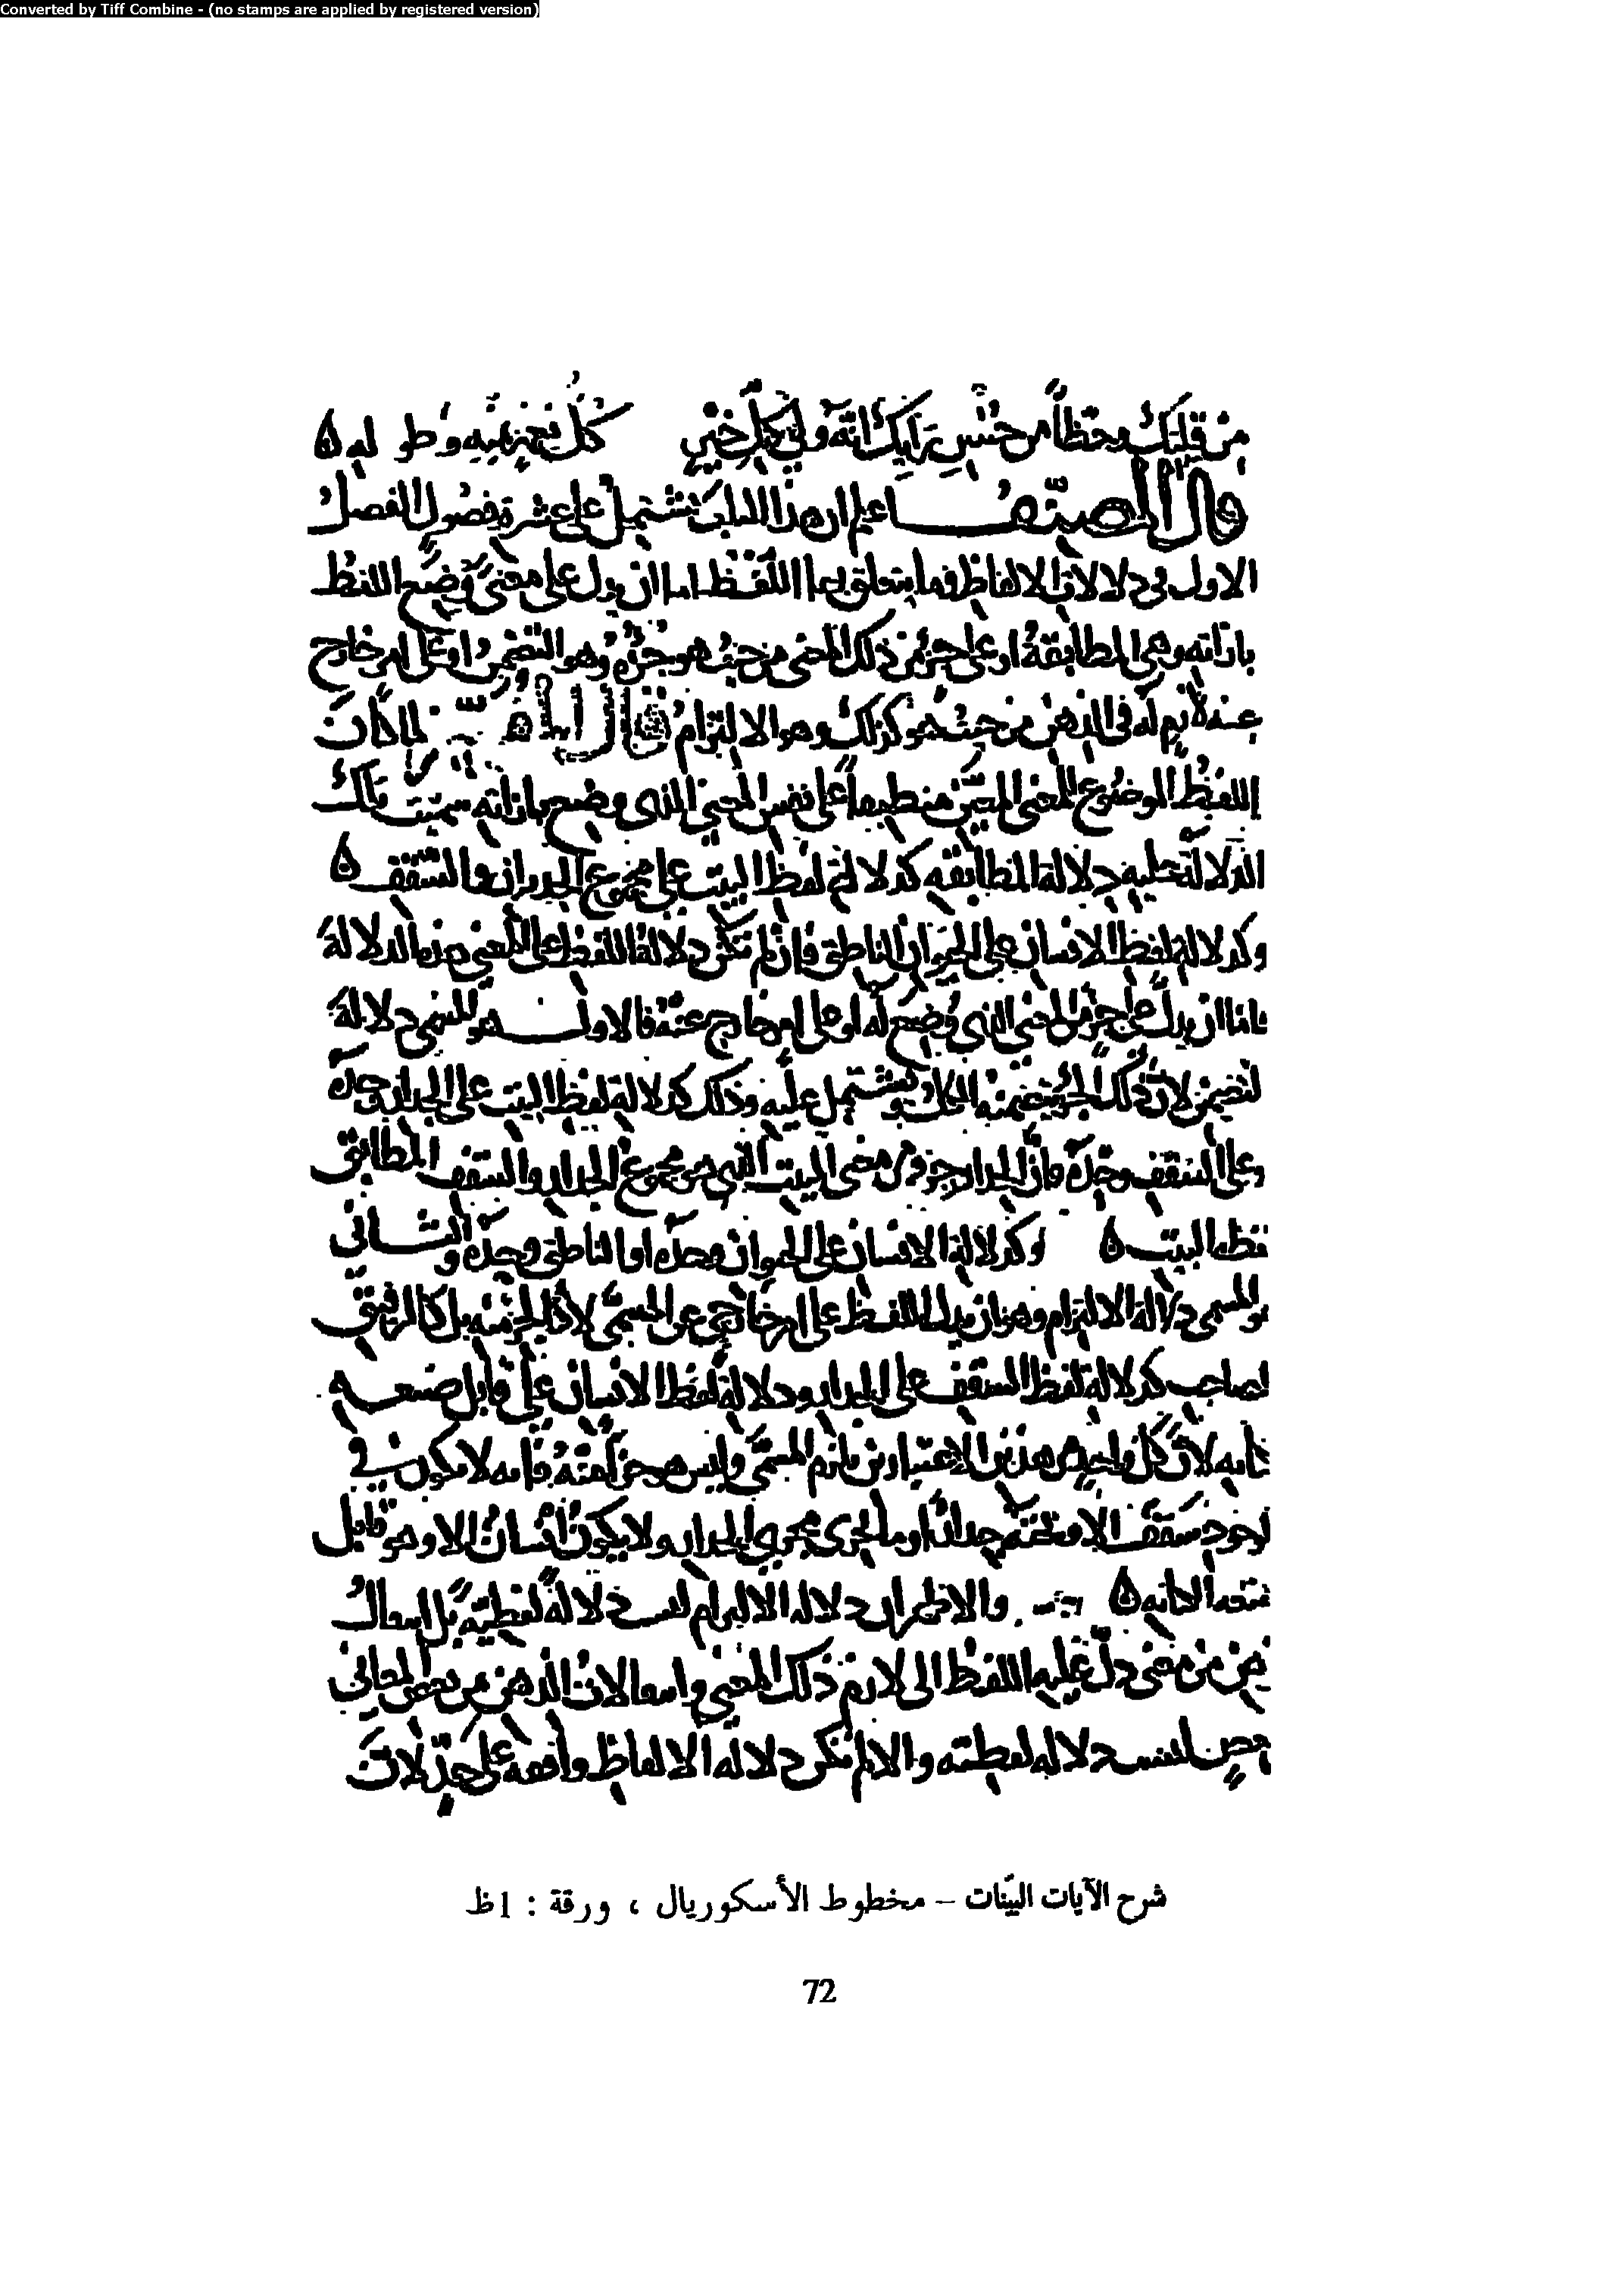 Converted by Tiff Combine - (no stamps are applied by registered version)
من قلبك وحظا من حسن رايك انه ولي كل خير كل بعزته وطوله
قال المصنف اعلم ان هذا الباب يشتمل على عشرة فصول الفصل
الاول في دلالات الالفاظ فيما يتعلق بها اللفظ اما ان يدل على معنى وضع اللفظ
بازائه وهي المطابقة او على جزء من ذلك المعنى من حيث هو جزؤه وهو التضمن او على امر خارج
عنه لازم له في الذهن من حيث هو كذلك وهو الالتزام قال لما كان
اللفظ الموضوع للمعنى المعين منطبقا على نفس المعنى الذي وضع بازائه سميت تلك
الدلالة عليه دلالة المطابقة كدلالة لفظ البيت على مجموع الجدران والسقف
وكدلالة لفظ الانسان على الحيوان الناطق فان لم تكن دلالة اللفظ على المعنى هذه الدلالة
فاما ان يدل على جزء من المعنى الذي وضع له او على امر خارج عنه فالاول هو المسمى دلالة
لتضمن لان ذلك الجزء يتضمنه الكل ويشتمل عليه وذلك كدلالة لفظ البيت على الجدار وحده
وعلى السقف وحده فان الجدار جزو من معنى البيت الذي هو مجموع الجدار والسقف المطابق
لفظه البيت وكدلالة الانسان على الحيوان وحده او الناطق وحده والثاني
هو المسمى دلالة الالتزام وهو ان يدل اللفظ على امر خارج عن المسمى لا كالجزء منه بل كالرفيق
لصاحب كدلالة لفظ السقف على الجدار ودلالة لفظ الانسان على قابل صنعة
لكتابه لان كل واحد من هذين الاعتبارين يلزم المسمى وليس هو جزا منه فانه لا يكون في
لوجود سقف الا وتحته جدار او ما يجري مجرى الجدار ولا يكون انسان الا وهو قابل
صنعة الكتابه والاظهر ان دلالة الالتزام ليست دلالة لفظية بل انتقال
ذهن من معنى دل عليه اللفظ الى لازم ذلك المعنى وانتقالات الذهن من بعض المعاني
بعض ليست دلاله لفظيه والا لم تكن دلالة الالفاظ واقفة على حد لان
شرح الآيات البيّنات – مخطوط الأسكوريال ، ورقة : 1ظ
72